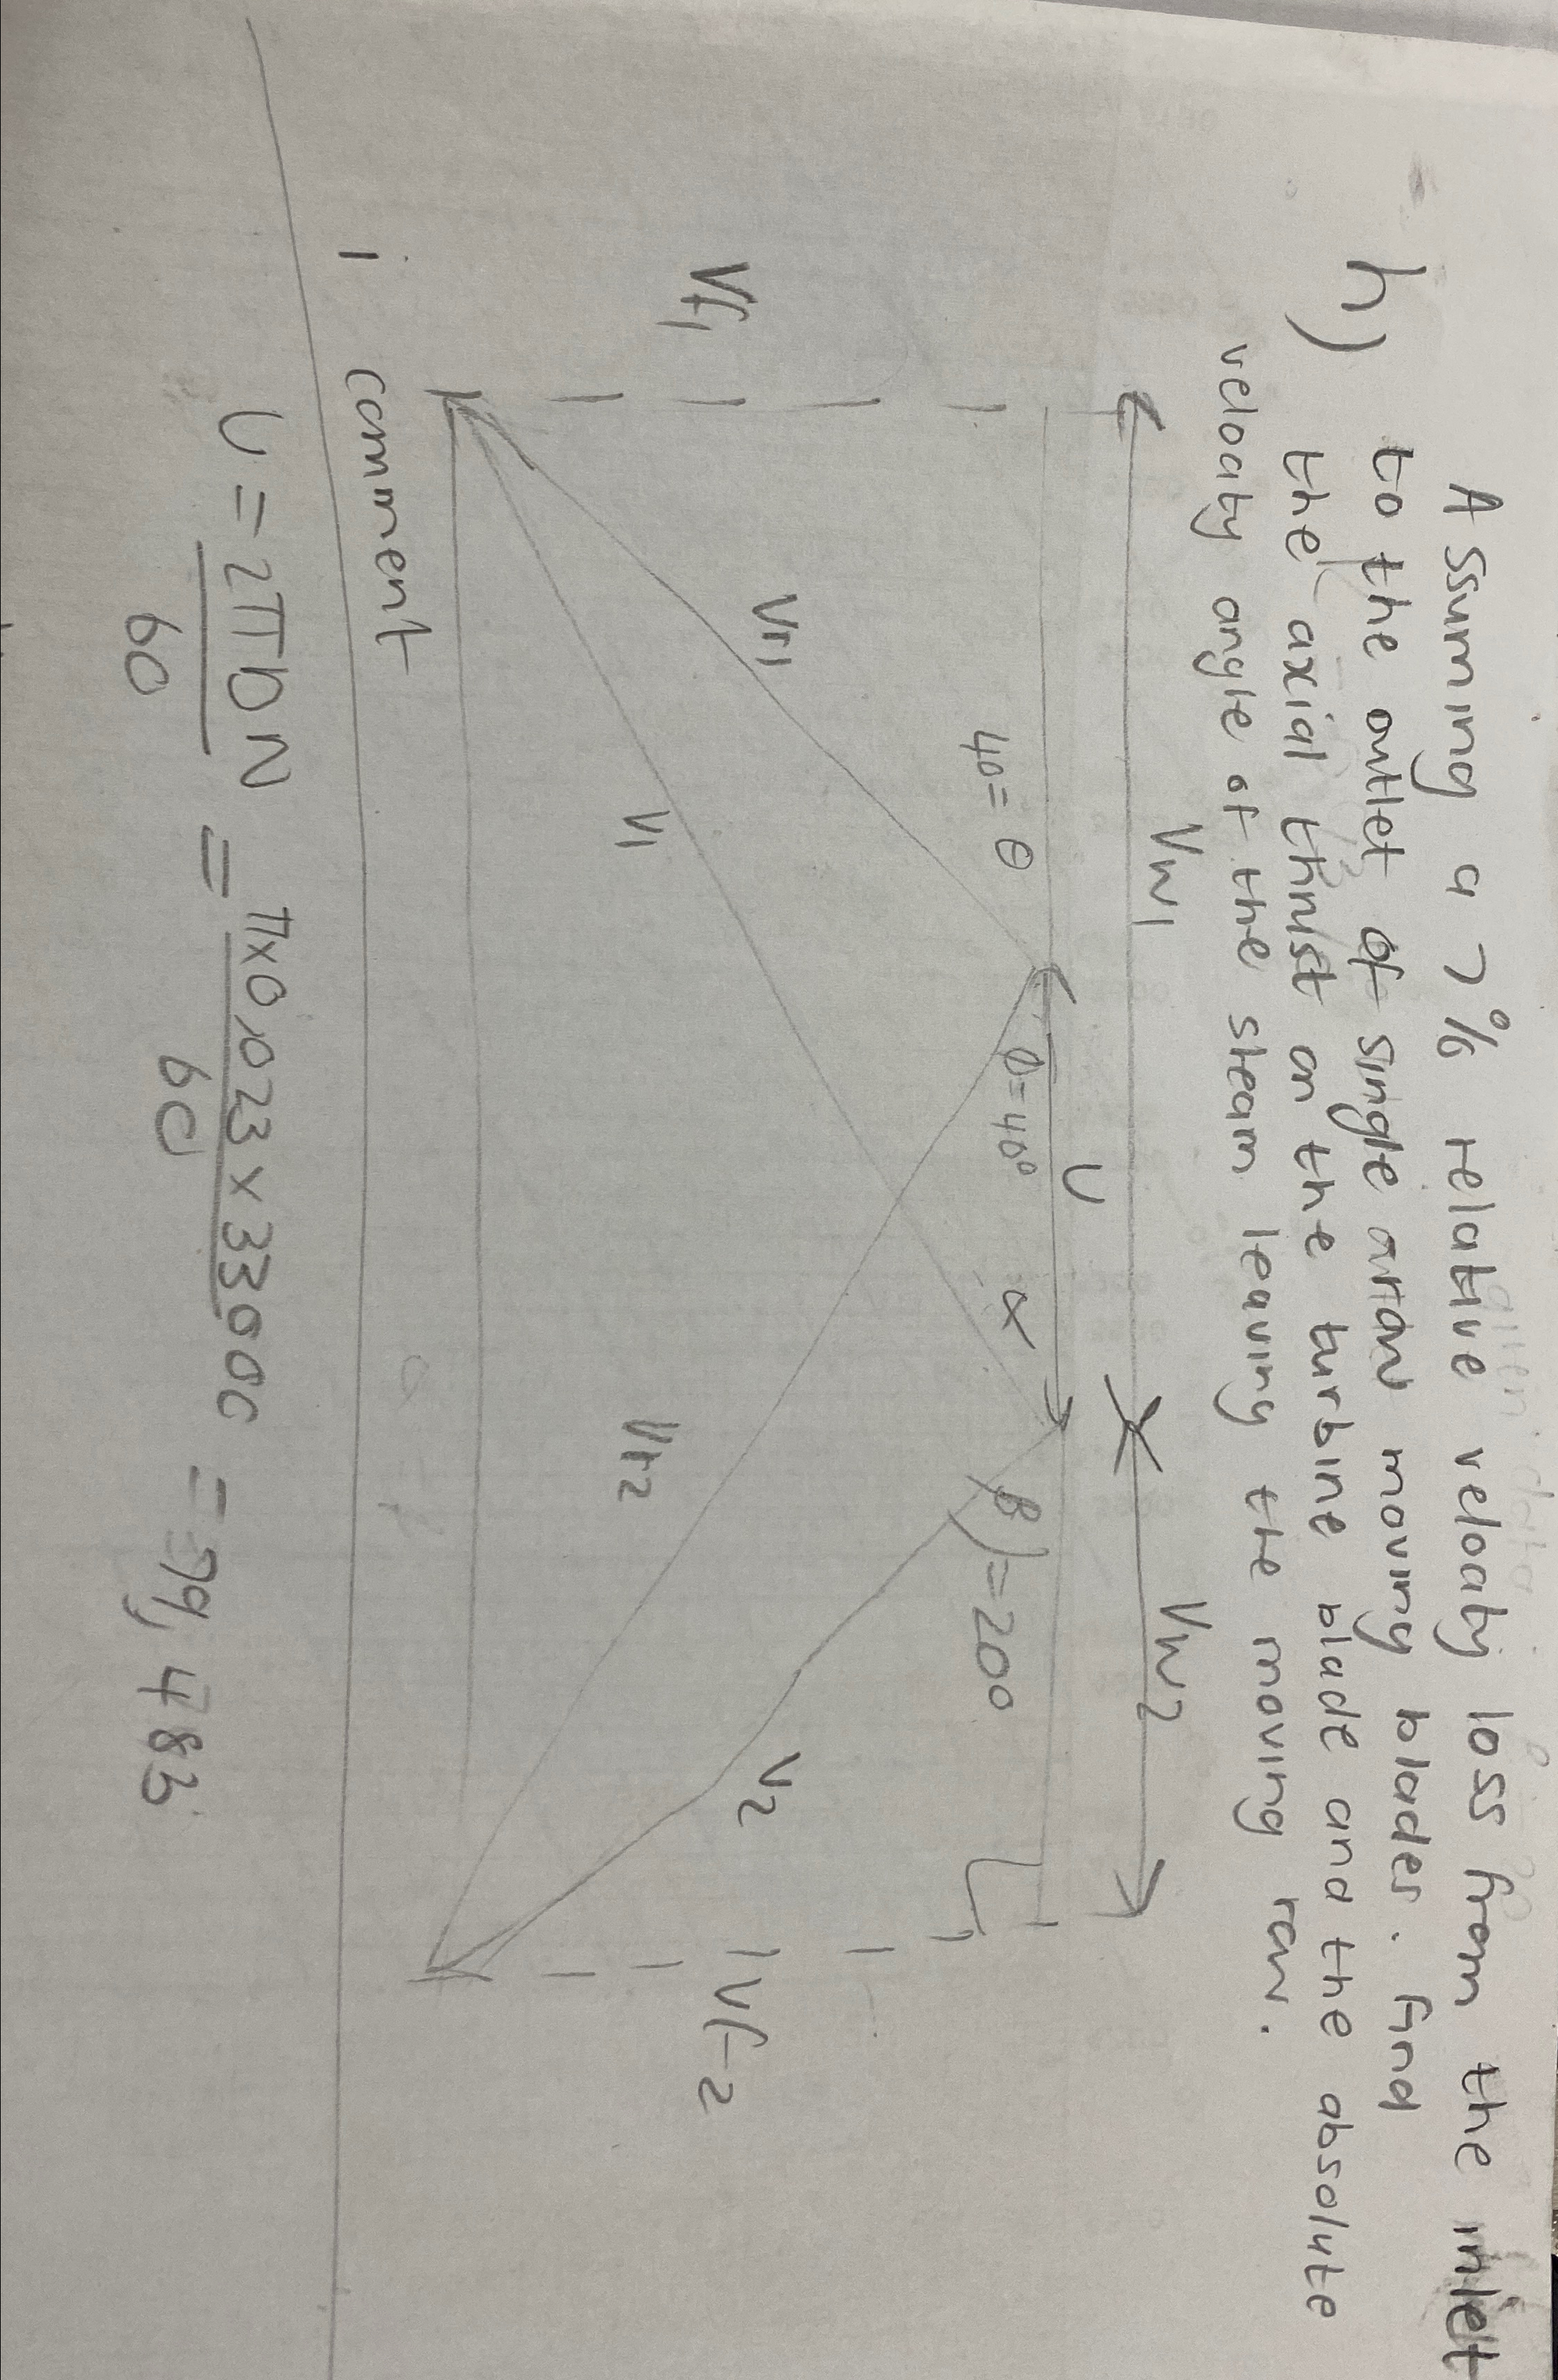 Assuming a 7% relative velocity loss from the inlet
h) to the outlet of single action moving blades. Find
the axial thrust on the turbine blade and the absolute
velocity angle of the steam leaving the moving row.
Vw1 Vw2
U
40 = θ Ø=40° α β)=20°
Vf1 Vr1 V1 Vr2 V2 Vf2
1 comment
U = 2πDN = π×0,023×33000 = 79,483
60 60